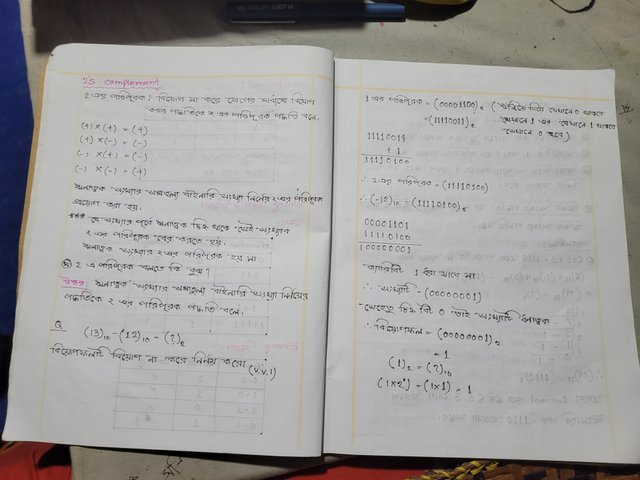 2's complement
২ এর পরিপূরক: বিয়োগ না করে যোগের মাধ্যমে বিয়োগ
করার পদ্ধতিকে ২ এর পরিপূরক পদ্ধতি বলে।
(+) × (+) = (+)
(+) × (-) = (-)
(-) × (+) = (-)
(-) × (-) = (+)
ঋনাত্মক সংখ্যার বাইনারি সংখ্যা নির্নয়ে ২ এর পরিপূরক
প্রয়োগ করা হয়।
*** যে সংখ্যার পূর্বে ঋনাত্মক চিহ্ন থাকে সেই সংখ্যার
২ এর পরিপূরক বের করতে হয়।
ঋনাত্মক সংখ্যার ২ এর পরিপূরক হয় না।
২ এ পরিপূরক বলতে কি বুঝ?
উত্তর: ঋনাত্মক সংখ্যার বাইনারি সংখ্যা নির্নয়ের
পদ্ধতিকে ২ এর পরিপূরক পদ্ধতি বলে।
Q (13)₁₀-(12)₁₀ = (?)₂
বিয়োগফলটি বিয়োগ না করে নির্নয় করো। (V.V.I)
1 এর পরিপূরক = (00001100)₂ ( যেখানে 0 থাকবে
= (11110011)₂ সেখানে 1 এর যেখানে 1 থাকবে
সেখানে 0 হবে)
11110011
+ 1
11110100
∴ 2 এর পরিপূরক = (11110100)
∴ (-12)₁₀ = (11110100)₂
00001101
11110100
100000001
ক্যারিবিট 1 ধরা যাবে না
∴ সংখ্যাটি = (00000001)
যেহেতু চিহ্ন বিট 0 তাই সংখ্যাটি ধনাত্মক
∴ বিয়োগফল = (00000001)₂
= 1
(1)₂ = (?)₁₀
(1×2⁰) = (1×1) = 1